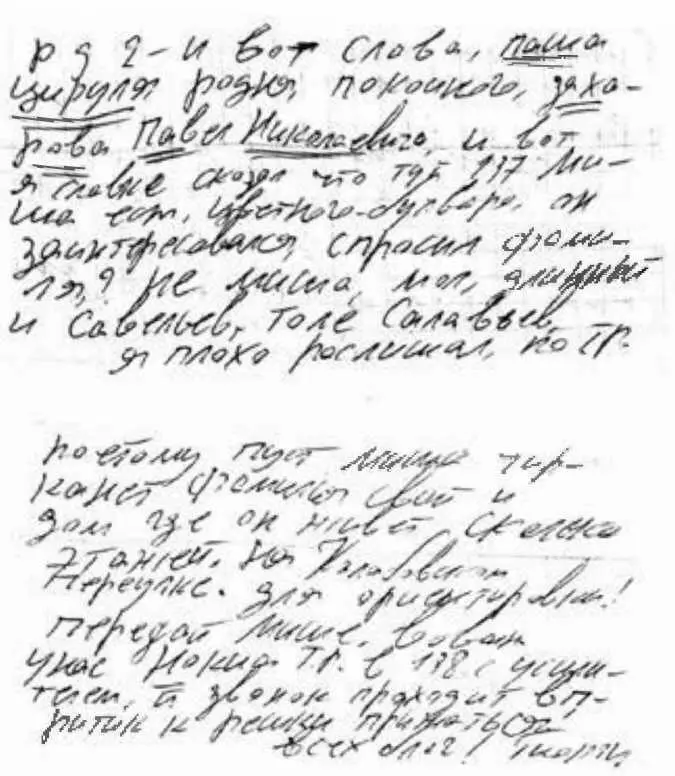 р д 2 - и вот слова, паша
цируля родня, покоиного, заха-
рова Павел Николаевича, и вот
я славке сказал что тут 137 ми-
ша ест, цветного-булвара, он
заинтересовался, спросил фами-
ля,? не миша, мол, длинный
и Савельев, толе Салавьев,
я плохо рослишал, по тр.
поэтому пуст миша чир-
канет фамилия свой и
дом где он живет, сколко
этажей, на Колобовском
переулке. для ориентировки!
передай мише, вован
у нас Нокиа тр. в 138 с усили-
телем, и звонок проходит вп-
ритик к решки прижаться
всех благ!